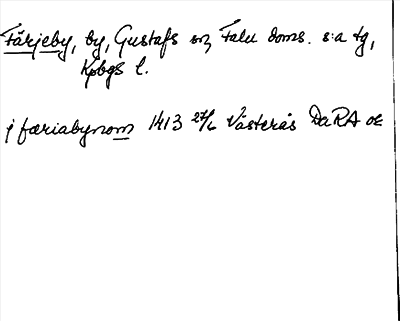 Färjeby, by, Gustafs sn, Falu doms. s:a tg,
Kpbgs l.
j færiabynom 1413 27/6 Västerås DaRA or